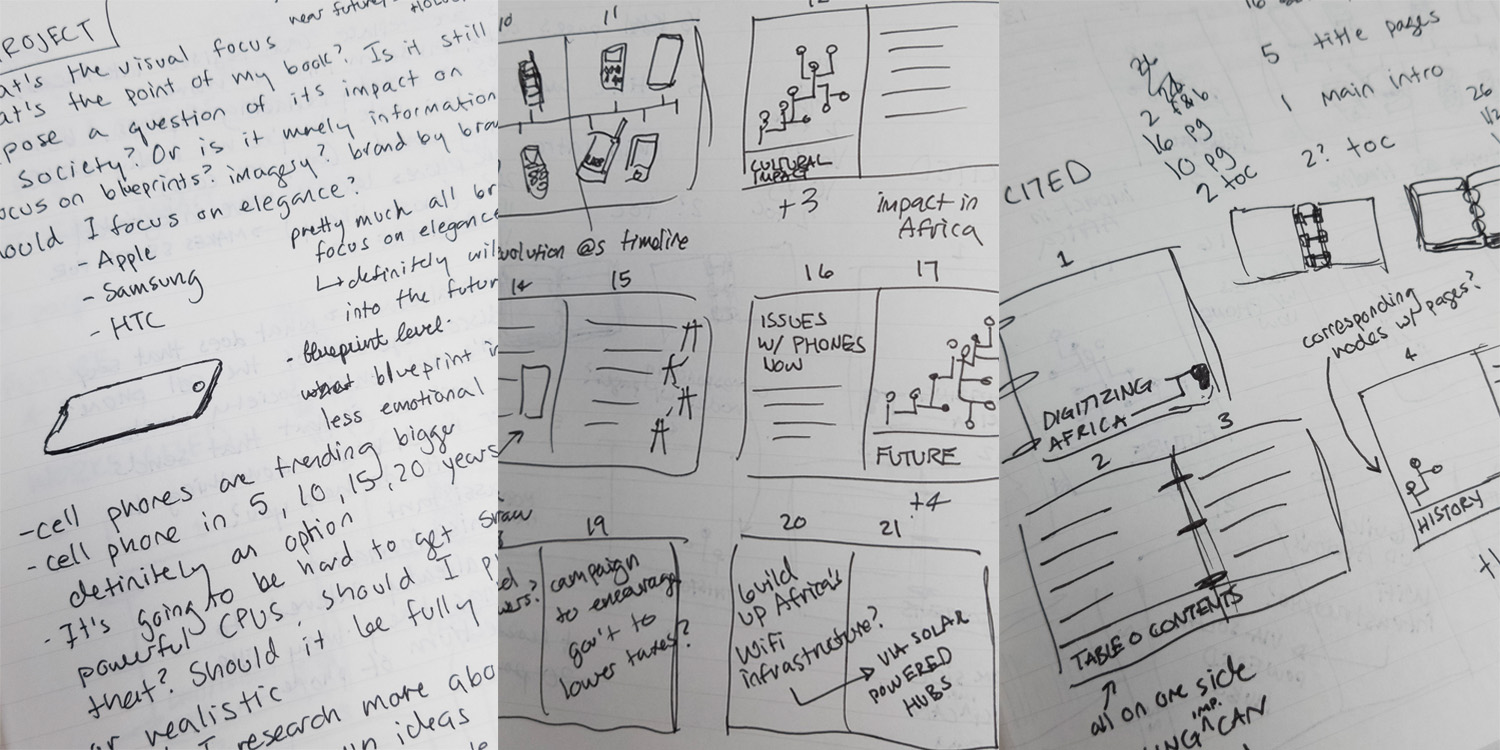 near future,
PROJECT
at's the visual focus
at's the point of my book? Is it still
pose a question of its impact on
society? Or is it merely information
ocus on blueprints? imagery? brand by bra
ould I focus on elegance?
- Apple
- Samsung
- HTC
pretty much all br
focus on elegance
definitely wil
into the futur
- blueprint level.
blueprint in
less emotional
- cell phones are trending bigger
- cell phone in 5, 10, 15, 20 years
definitely an option
- It's going to be hard to get
powerful CPUs. should I p
that? Should it be fully
or realistic
I research more abo
ideas
10
11
volution @s timeline
12
CULTURAL
IMPACT
+3
impact in
Africa
14
15
16
17
ISSUES
W/ PHONES
NOW
FUTURE
+4
straw
19
campaign
to encourage
gov't to
lower taxes?
20
21
build
up Africa's
Wifi
infrastructure?
VIA SOLAR
POWERED
HUBS
26
2 f&b.
16 pg
10 pg
2 toc
5 title pages
1 main intro
2? toc
26
1/2
CITED
1
DIGITIZING
AFRICA
corresponding
nodes w/ pages?
4
HISTORY
2
3
TABLE O CONTENTS
all on one side
IMP.
CAN